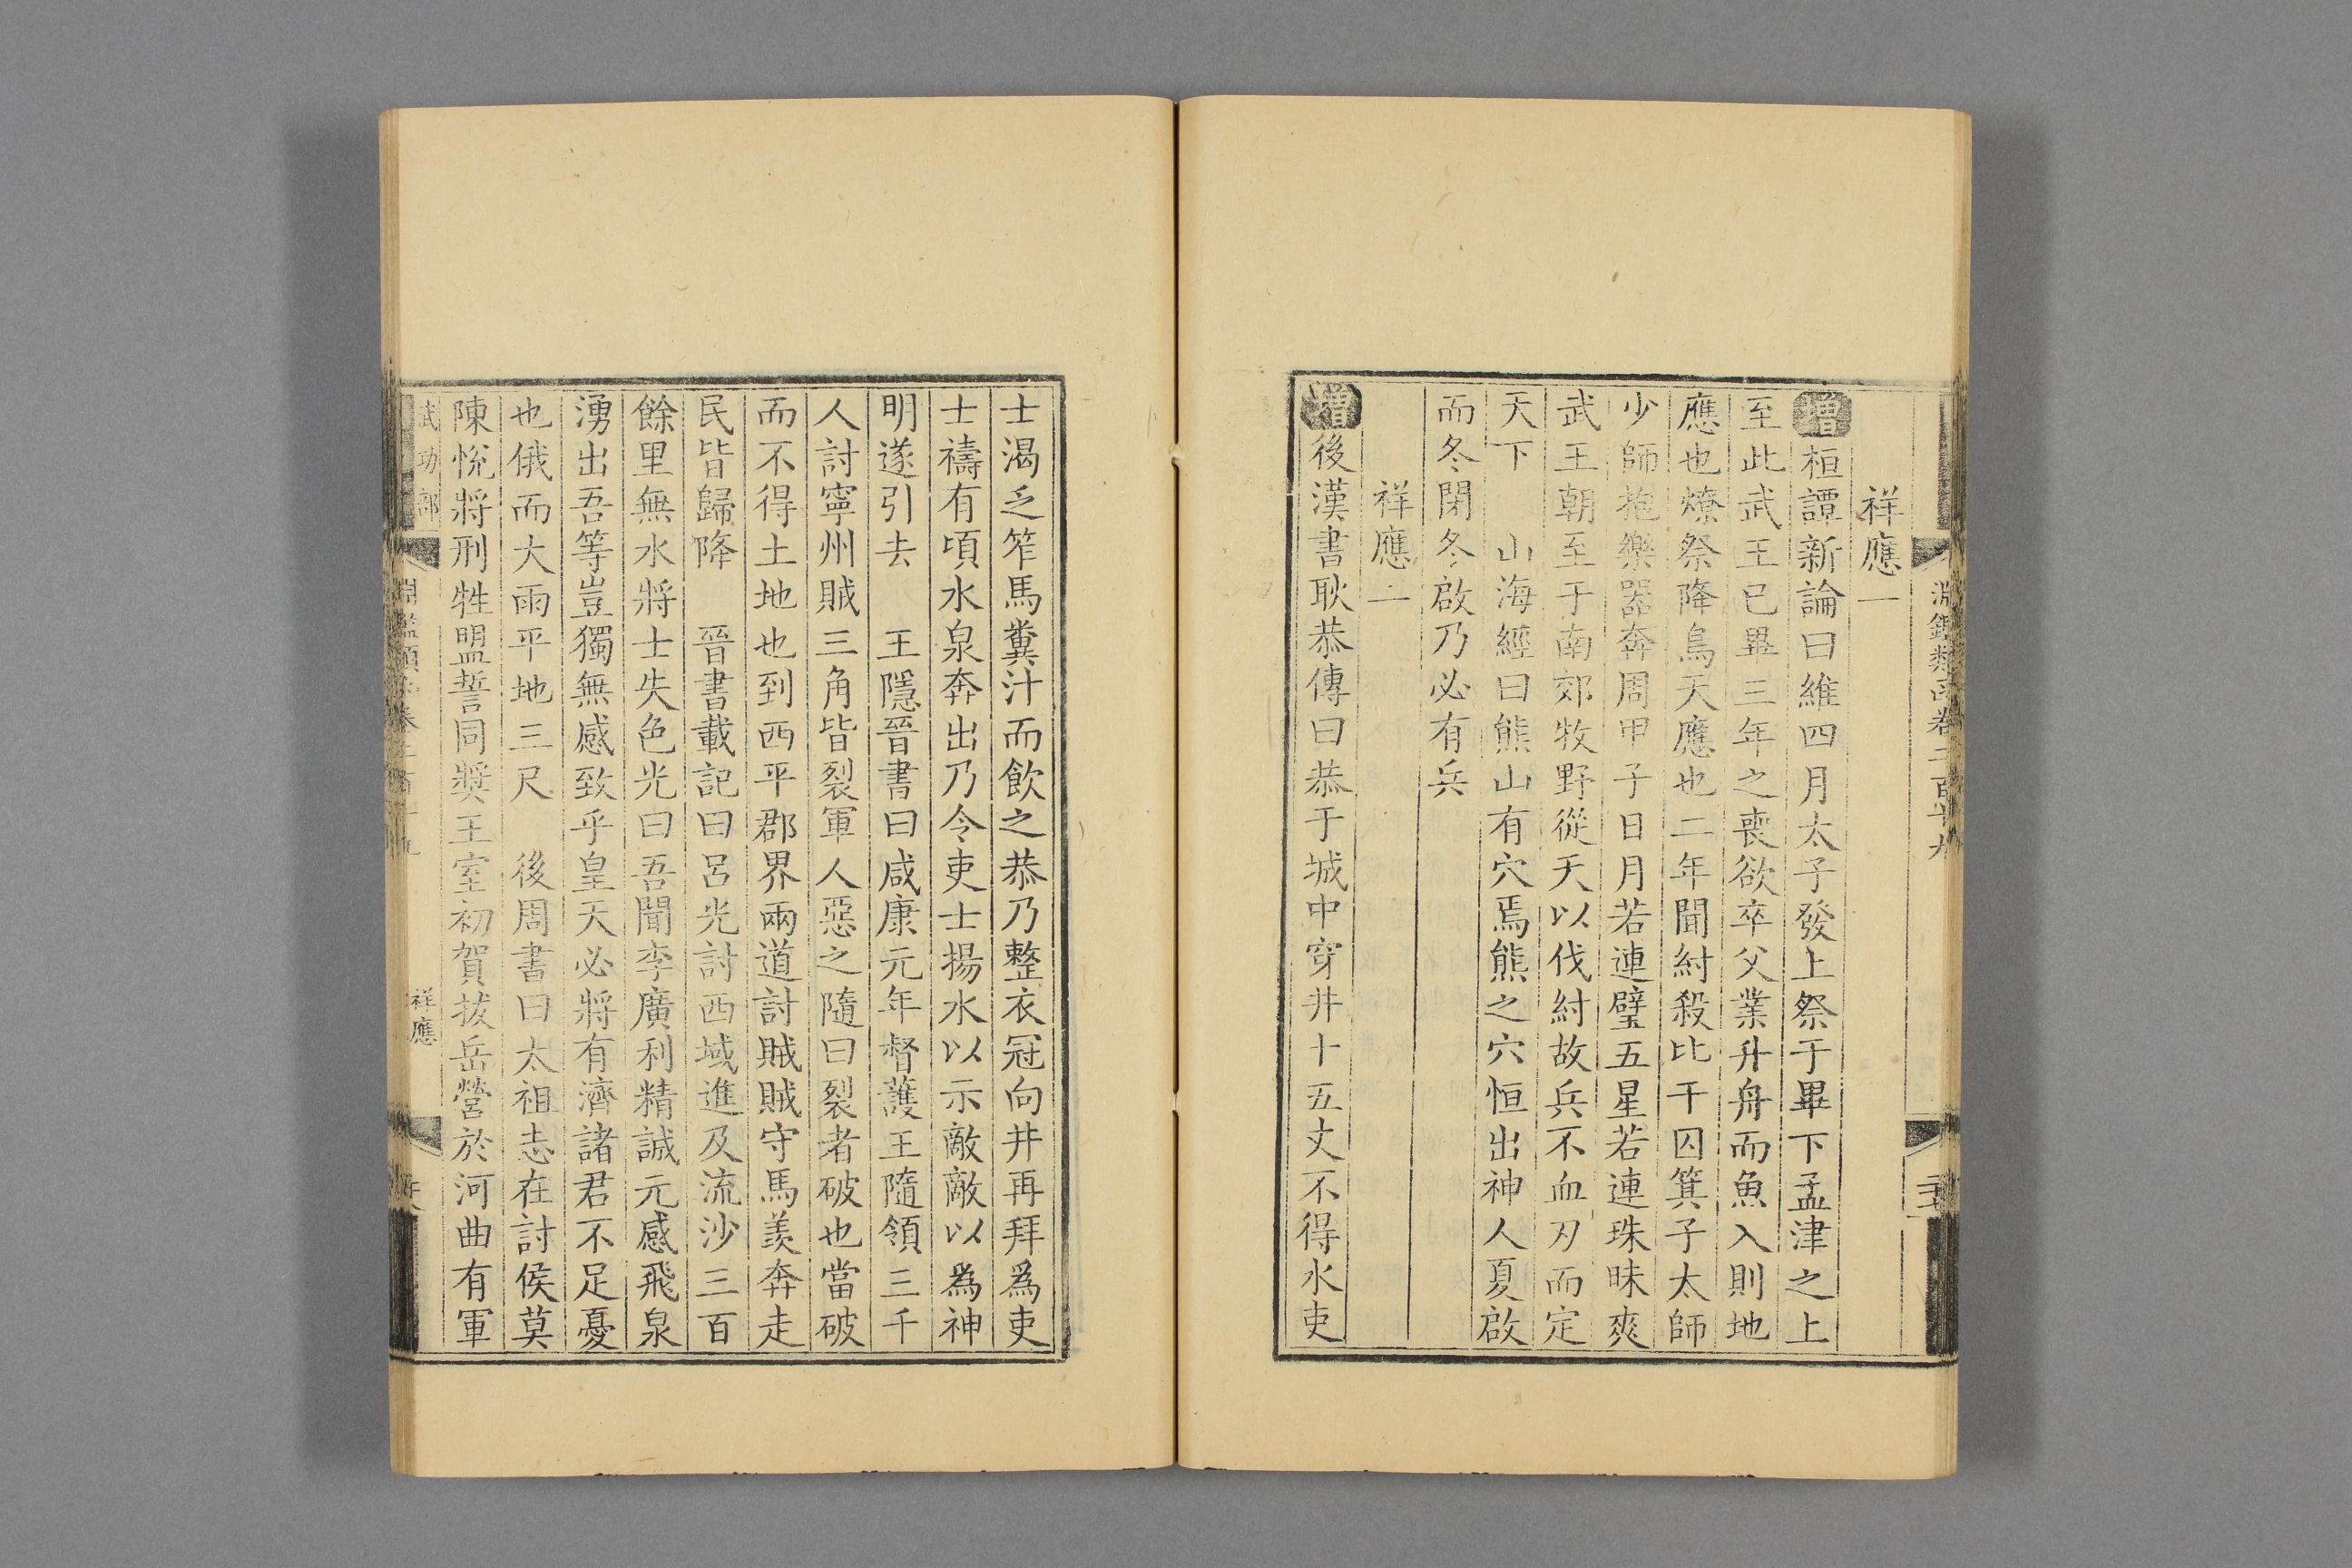 淵鑑類函卷二百十九
祥應一
增桓譚新論曰維四月太子發上祭于畢下孟津之上
至此武王已畢三年之喪欲卒父業升舟而魚入則地
應也燎祭降烏天應也二年聞紂殺比干囚箕子太師
少師抱樂器奔周甲子日月若連璧五星若連珠昧爽
武王朝至于南郊牧野從天以伐紂故兵不血刃而定
天下　山海經曰熊山有穴焉熊之穴恒出神人夏啟
而冬閉冬啟乃必有兵
祥應二
增後漢書耿恭傳曰恭于城中穿井十五丈不得水吏
士渴乏笮馬糞汁而飲之恭乃整衣冠向井再拜爲吏
士禱有頃水泉奔出乃令吏士揚水以示敵敵以爲神
明遂引去　王隱晉書曰咸康元年督護王隨領三千
人討寧州賊三角皆裂軍人惡之隨曰裂者破也當破
而不得土地也到西平郡界兩道討賊賊守馬羨奔走
民皆歸降　晉書載記曰呂光討西域進及流沙三百
餘里無水將士失色光曰吾聞李廣利精誠元感飛泉
湧出吾等豈獨無感致乎皇天必將有濟諸君不足憂
也俄而大雨平地三尺　後周書曰太祖志在討侯莫
陳悅將刑牲盟誓同獎王室初賀拔岳營於河曲有軍
武功部
淵鑑類函卷二百十九
祥應